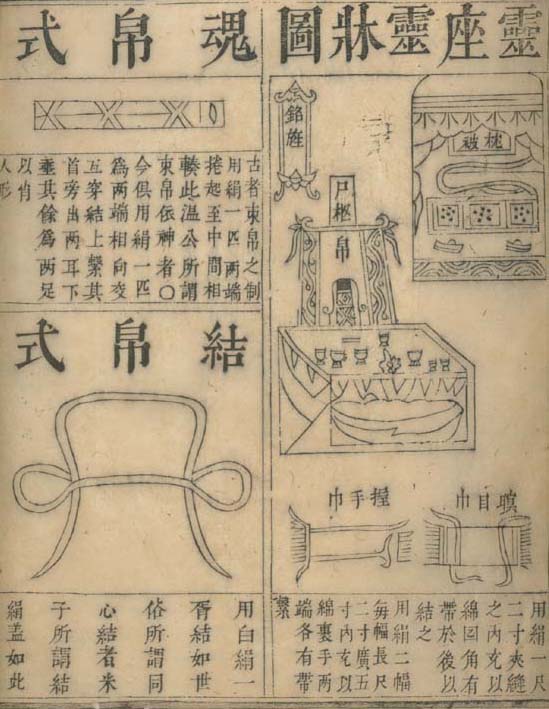 靈座靈牀圖
枕被
銘旌
尸柩
帛
瞑目巾
握手巾
用絹一尺
二寸夾縫
之內充以
綿四角有
帶於後以
結之
用絹二幅
每幅長尺
二寸廣五
寸內充以
綿裹手兩
端各有帶
繫
魂帛式
古者束帛之制
用絹一匹兩端
捲起至中間相
輳此溫公所謂
束帛依神者○
今俱用絹一匹
為兩端相向交
互穿結上繫其
首旁出兩耳下
垂其餘為兩足
以肖
人形
結帛式
用白絹一
胥結如世
俗所謂同
心結者朱
子所謂結
絹盖如此